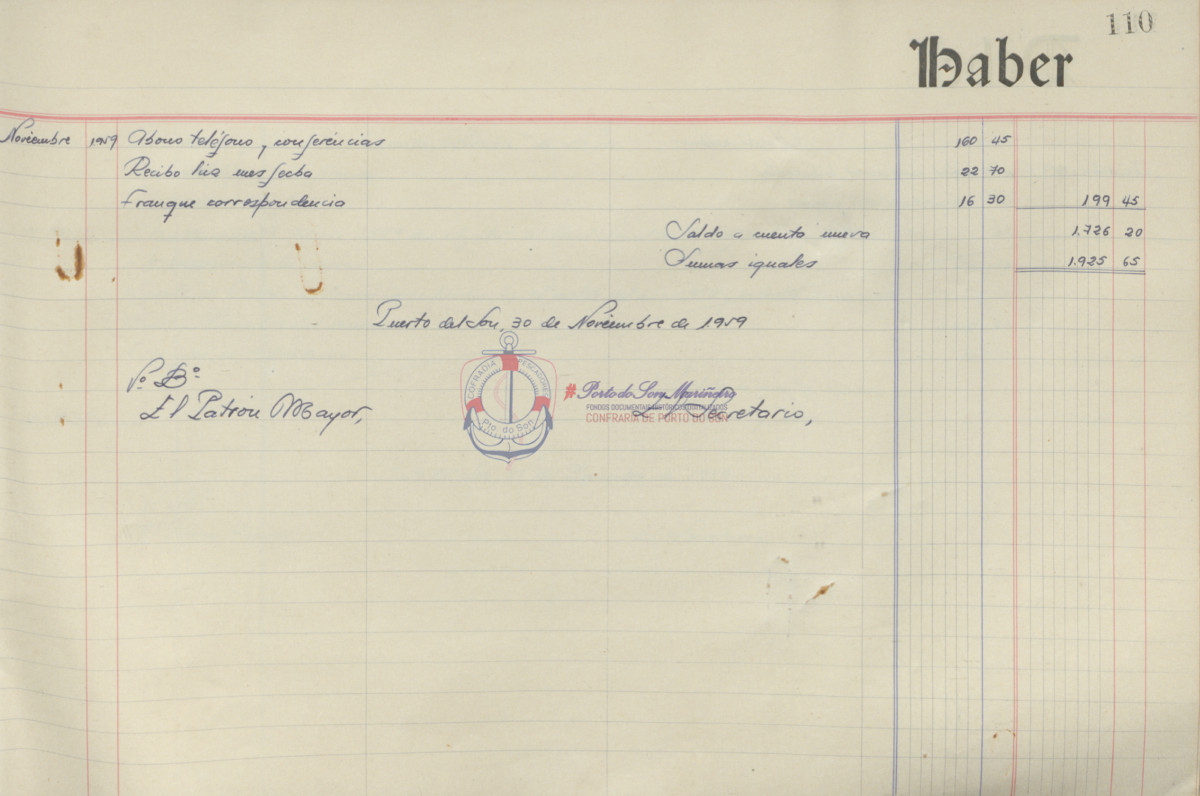 110
Haber
Noviembre 1959 Abono teléfono y conferencias 160 45
Recibo luz mes fecha 22 70
Franque correspondencia 16 30 199 45
Saldo a cuenta nueva 1.726 20
Sumas iguales 1.925 65
Puerto del Son, 30 de Noviembre de 1959
Vº Bº
El Patrón Mayor,
Secretario,
COFRADIA PESCADORES
Pto. do Son
#Porto do Son Mariñeiro
FONDOS DOCUMENTAIS HISTÓRICOS DIXITALIZADOS
CONFRARÍA DE PORTO DO SON